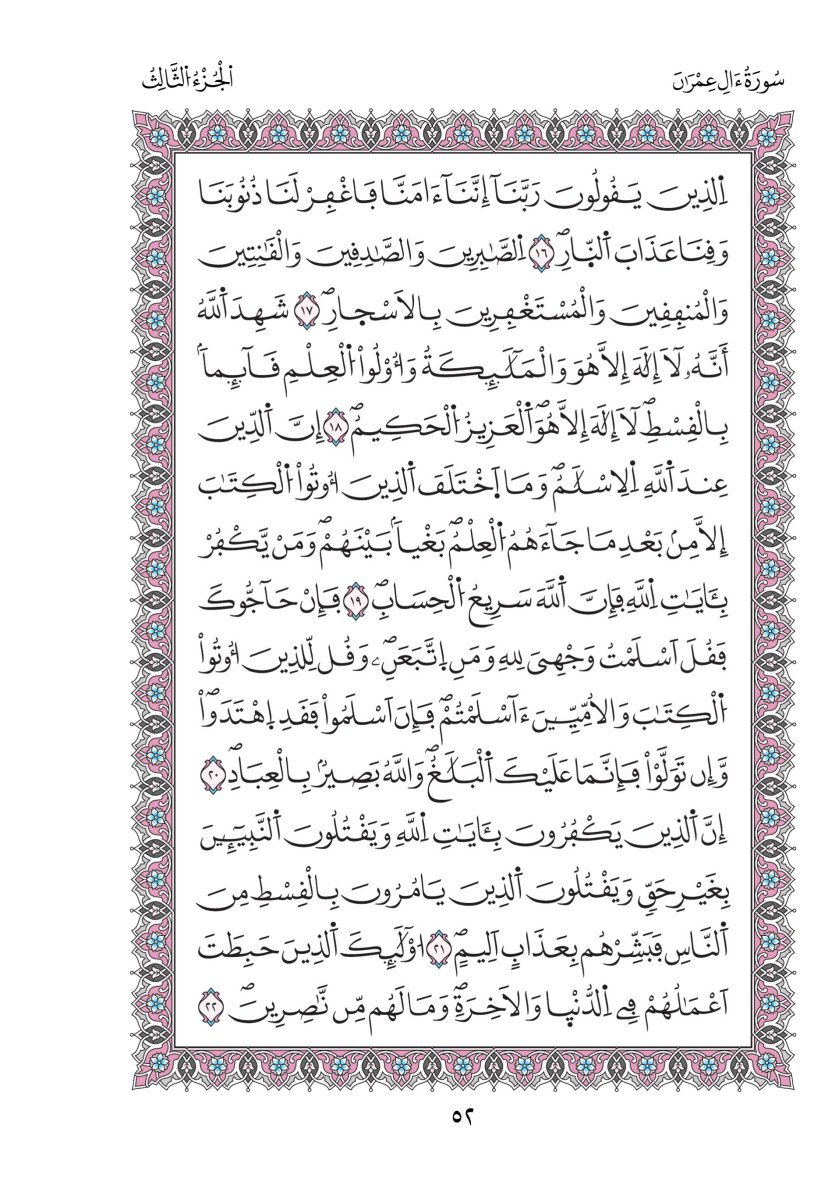 سُورَةُ ءَالِ عِمْرَٰنَ
اَلْجُزْءُ اُلثَّالِثُ
اِلذِينَ يَقُولُونَ رَبَّنَآ إِنَّنَآ ءَامَنَّا فَاغْفِرْ لَنَا ذُنُوبَنَا
وَقِنَا عَذَابَ اَلنّ۪ارِۖ ١٦ اِ۬لصَّٰبِرِينَ وَالصَّٰدِقِينَ وَالْقَٰنِتِينَ
وَالْمُنفِقِينَ وَالْمُسْتَغْفِرِينَ بِالَاسْح۪ارِۖ ١٧ شَهِدَ اَللَّهُ
أَنَّهُۥ لَآ إِلَٰهَ إِلَّا هُوَ وَالْمَلَٰٓئِكَةُ وَأُوْلُواْ اُلْعِلْمِ قَآئِماَۢ
بِالْقِسْطِۖ لَآ إِلَٰهَ إِلَّا هُوَۖ اَ۬لْعَزِيزُ اُلْحَكِيمُۖ ١٨ إِنَّ اَلدِّينَ
عِندَ اَللَّهِ اِلِاسْلَٰمُۖ وَمَا اَخْتَلَفَ اَلذِينَ أُوتُواْ اُلْكِتَٰبَ
إِلَّا مِنۢ بَعْدِ مَا جَآءَهُمُ اُلْعِلْمُۖ بَغْياَۢ بَيْنَهُمْۖ وَمَنْ يَّكْفُرْ
بِـَٔايَٰتِ اِللَّهِ فَإِنَّ اَللَّهَ سَرِيعُ اُلْحِسَابِۖ ١٩ فَإِنْ حَآجُّوكَ
فَقُلَ اَسْلَمْتُ وَجْهِيَ لِلهِ وَمَنِ اِتَّبَعَنِۦۖ وَقُل لِّلذِينَ أُوتُواْ
اُلْكِتَٰبَ وَالُامِّيِّـۧنَ ءَآسْلَمْتُمْۖ فَإِنَ اَسْلَمُواْ فَقَدِ اِهْتَدَواْۖ
وَّإِن تَوَلَّوْاْ فَإِنَّمَا عَلَيْكَ اَلْبَلَٰغُۖ وَاللَّهُ بَصِيرُۢ بِالْعِبَادِۖ ٢٠
إِنَّ اَلذِينَ يَكْفُرُونَ بِـَٔايَٰتِ اِللَّهِ وَيَقْتُلُونَ اَلنَّبِيٓـِٕينَ
بِغَيْرِ حَقّٖ وَيَقْتُلُونَ اَلذِينَ يَامُرُونَ بِالْقِسْطِ مِنَ
اَلنَّاسِ فَبَشِّرْهُم بِعَذَابٍ اَلِيمٍۖ ٢١ اُوْلَٰٓئِكَ اَلذِينَ حَبِطَتَ
اَعْمَٰلُهُمْ فِي اِلدُّنْي۪ا وَالَاخِرَةِۖ وَمَا لَهُم مِّن نَّٰصِرِينَۖ ٢٢
٥٢